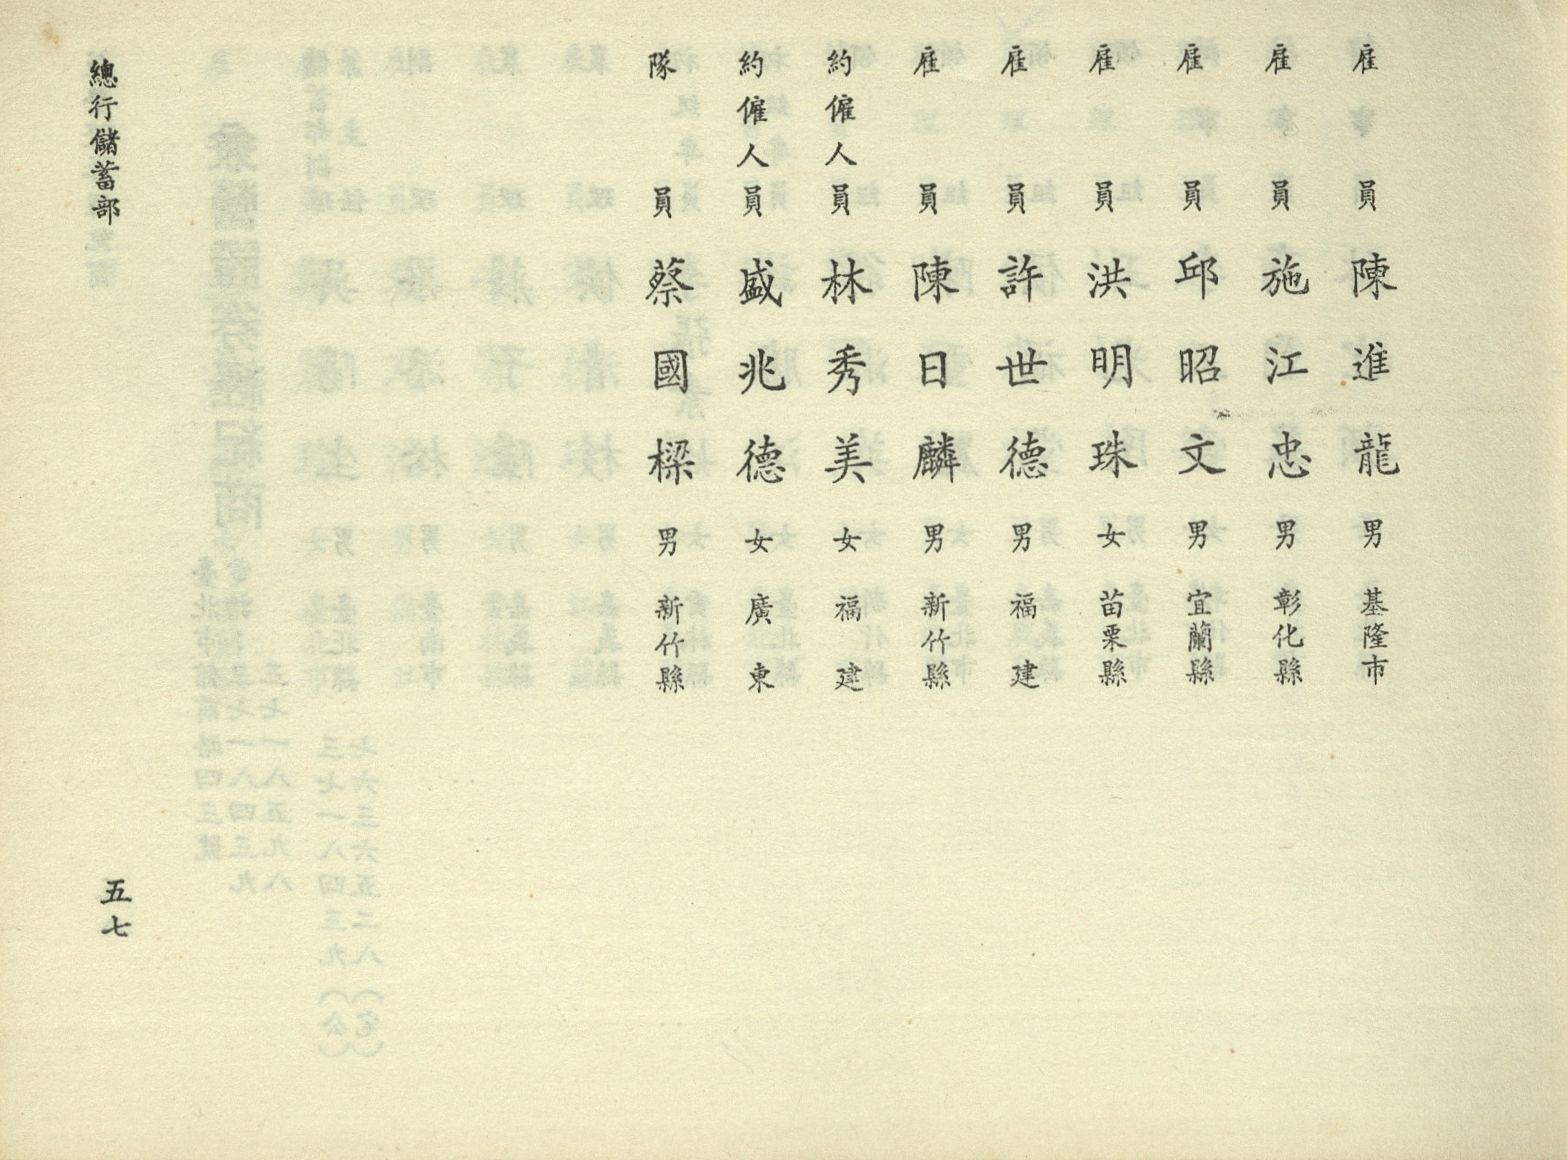 雇員 陳進龍 男 基隆市
雇員 施江忠 男 彰化縣
雇員 邱昭文 男 宜蘭縣
雇員 洪明珠 女 苗栗縣
雇員 許世德 男 福建
雇員 陳日麟 男 新竹縣
約僱人員 林秀美 女 福建
約僱人員 盛兆德 女 廣東
隊員 蔡國樑 男 新竹縣
總行儲蓄部
五七